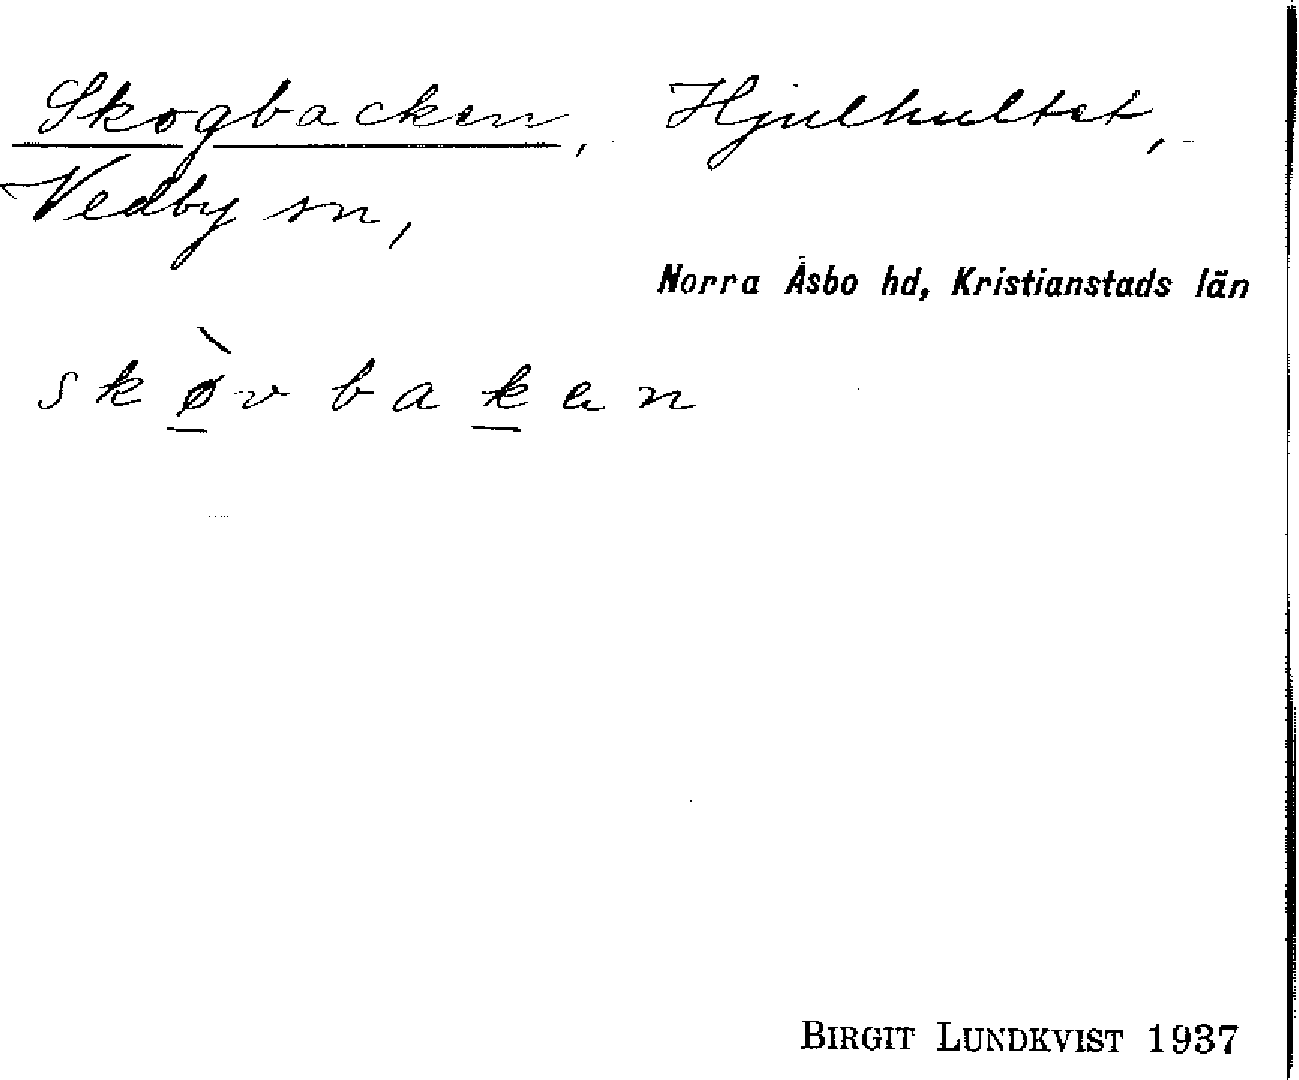 Skogbacken, Hjulhultet,
Vedby sn,
Norra Åsbo hd, Kristianstads län
skø̀vbakan
BIRGIT LUNDKVIST 1937